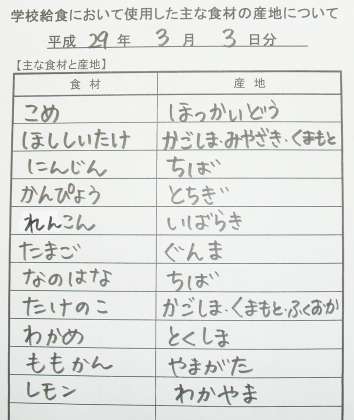 学校給食において使用した主な食材の産地について
平成 29 年 3 月 3 日分
【主な食材と産地】
食 材 産 地
こめ ほっかいどう
ほししいたけ かごしま・みやざき・くまもと
にんじん ちば
かんぴょう とちぎ
れんこん いばらき
たまご ぐんま
なのはな ちば
たけのこ かごしま・くまもと・ふくおか
わかめ とくしま
ももかん やまがた
レモン わかやま